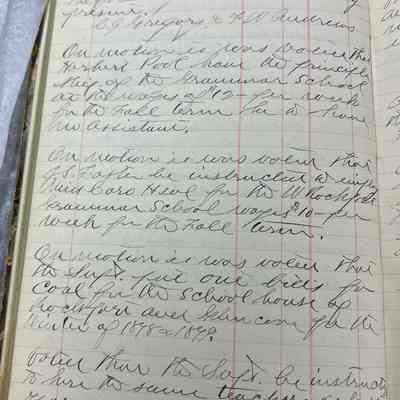 present.
C. J. Gregory, & F. W. Andrews
On motion it was voted that
Herbert Pool have the principle
ship of the Grammar School
at the wages of $12 - per week
for the fall term he to have
no assistant.
On motion it was voted that
be instructed to
Miss Cara Heal for the W Rockport
Grammar School wages $10 - per
week for the fall term.
On motion it was voted that
the Supt. put out bids for
Coal for the School house of
Rockport and Glencove for the
Winter of 1898 & 1899.
Voted that the Supt. be instructed
to hire the same teachers